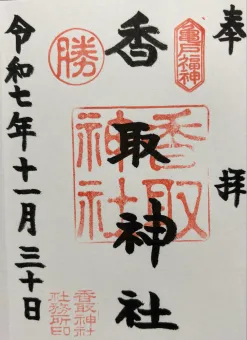 奉拝
亀戸福神
香取神社
勝
香取神社
令和七年十一月三十日
香取神社
社務所印